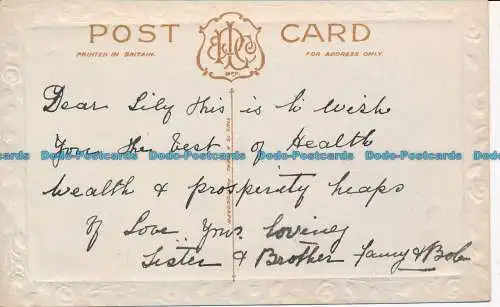 POST CARD
PRINTED IN BRITAIN.
FOR ADDRESS ONLY.
Dear Lily this is to wish
You the best of Health
wealth & prosperity heaps
of Love. Your loving
Sister & Brother Fanny & Bob
Dodo-Postcards Dodo-Postcards Dodo-Postcards Dodo-Postcards